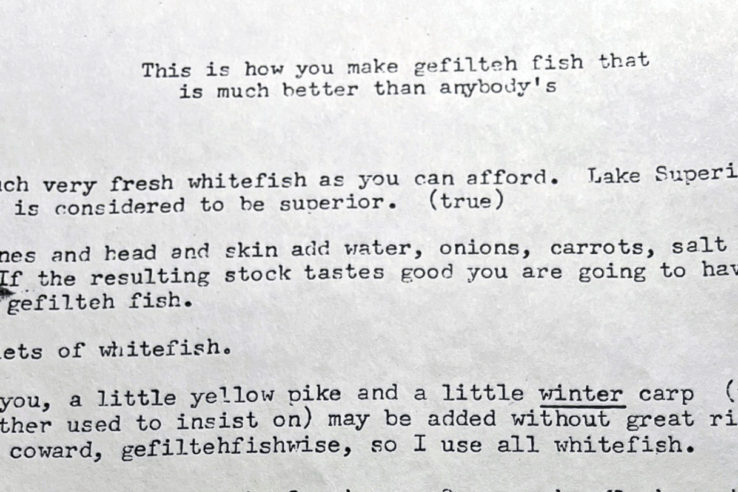 This is how you make gefilteh fish that
is much better than anybody's
very fresh whitefish as you can afford. Lake
is considered to be superior. (true)
and head and skin add water, onions, carrots, salt
If the resulting stock tastes good you are going to
gefilteh fish.
of whitefish.
you, a little yellow pike and a little winter carp (
used to insist on) may be added without great
coward, gefiltehfishwise, so I use all whitefish.